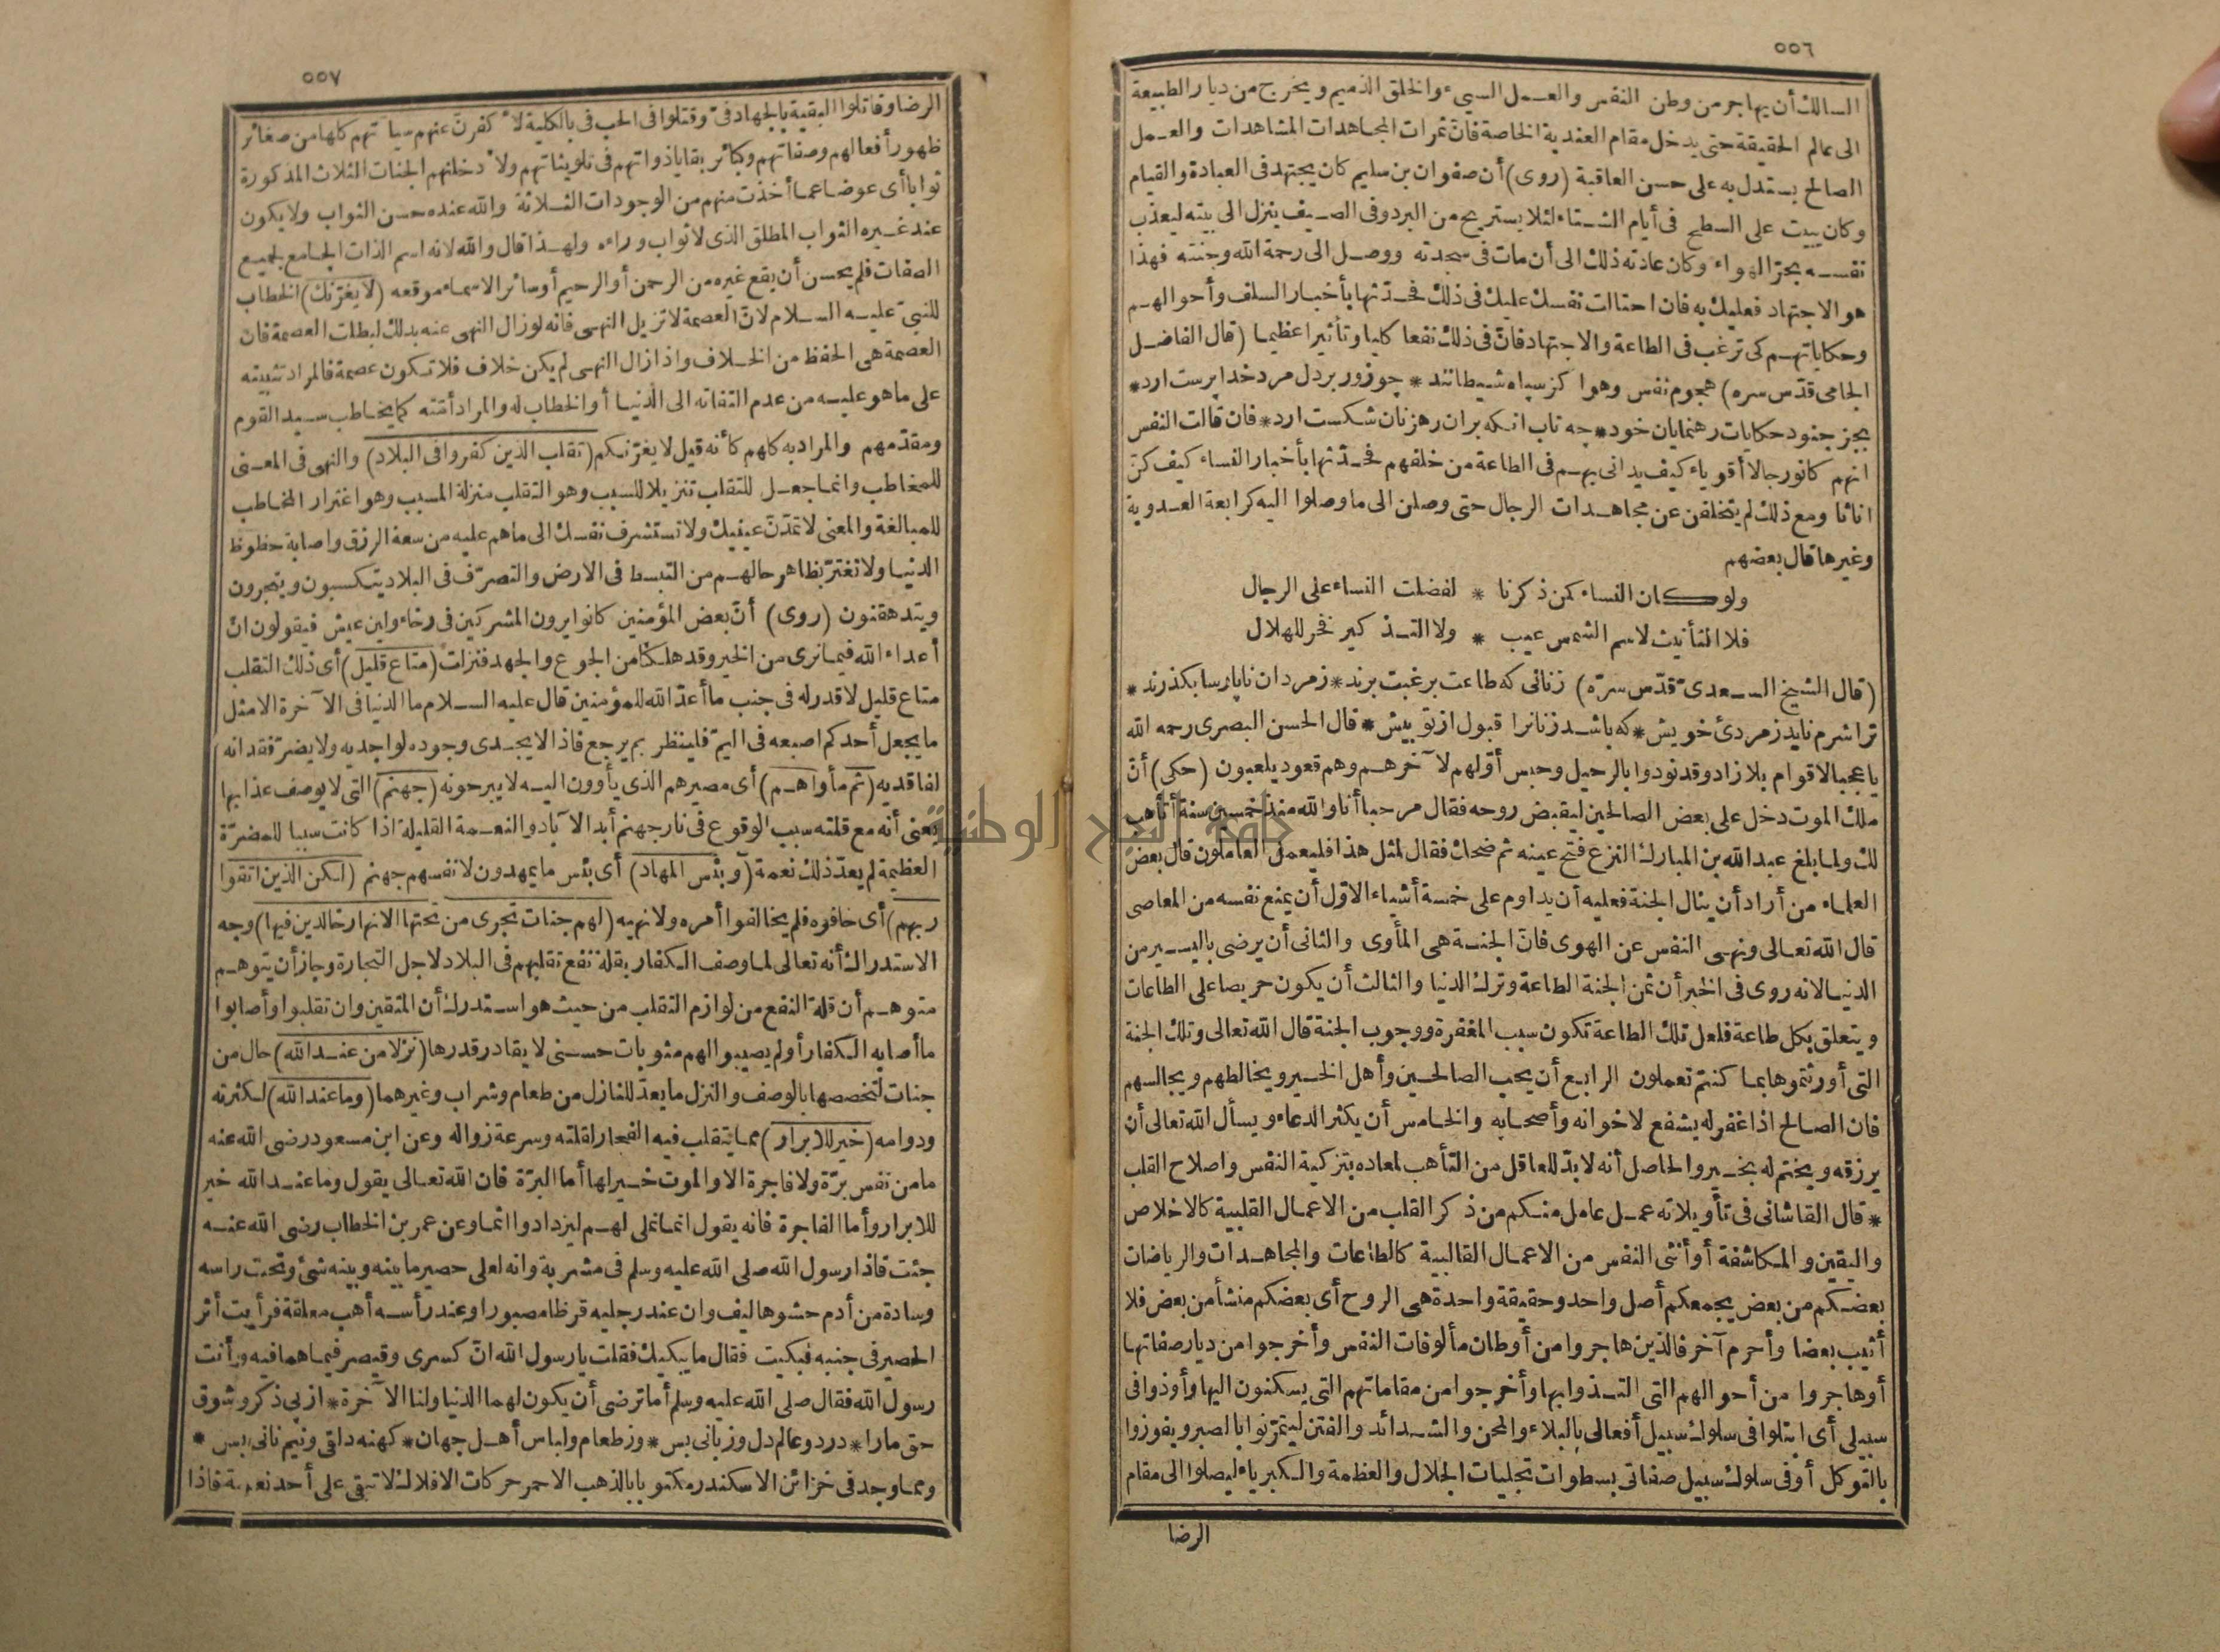 ٥٥٦
السالك أن يهاجر من وطن النفس والعمل السيىء والخلق الذميم ويخرج من ديار الطبيعة
الى عالم الحقيقة حتى يدخل مقام العندية الخاصة فان ثمرات المجاهدات المشاهدات والعمل
الصالح يستدل به على حسن العاقبة (روى) أن صفوان بن سليم كان يجتهد فى العبادة والقيام
وكان يبيت على السطح فى أيام الشتاء لئلا يستريح من البرد وفى الصيف ينزل الى بيته ليعذب
نفسه بحر الهواء وكان عادته ذلك الى أن مات فى سجدته ووصل الى رحمة الله وجنته فهذا
هو الاجتهاد فعليك به فان احتالت نفسك عليك فى ذلك فحدّثها بأخبار السلف وأحوالهم
وحكاياتهم كى ترغب فى الطاعة والاجتهاد فان فى ذلك نفعا كليا وتأثيرا عظيما (قال الفاضل
الجامى قدّس سره) هجوم نفس وهوا كز سپاه شيطانند * چو زور بر دل مرد خدا پرست ارد *
بجز جنود حكايات رهنمايان خود * چه تاب انكه بران رهزنان شكست ارد * فان قالت النفس
انهم كانوا رجالا أقوياء كيف يدانى بهم فى الطاعة من خلفهم فحدّثها بأخبار النساء كيف كنّ
اناثا ومع ذلك لم يتخلفن عن مجاهدات الرجال حتى وصلن الى ما وصلوا اليه كرابعة العدوية
وغيرها قال بعضهم
ولو كان النساء كمن ذكرنا * لفضلت النساء على الرجال
فلا التأنيث لاسم الشمس عيب * ولا التذكير فخر للهلال
(قال الشيخ السعدى قدّس سرّه) زنانى كه طاعت برغبت برند * زمردان ناپارسا بكذرند *
ترا شرم نايد زمردئ خويش * كه باشد زنانرا قبول از تو بيش * قال الحسن البصرى رحمه الله
يا عجبا لاقوام بلا زاد وقد نودوا بالرحيل وحبس أوّلهم لآخرهم وهم قعود يلعبون (حكى) أن
ملك الموت دخل على بعض الصالحين ليقبض روحه فقال مرحبا أنا والله منذ خمسين سنة أتأهب
لك ولما بلغ عبد الله بن المبارك النزع فتح عينه ثم ضحك فقال لمثل هذا فليعمل العاملون قال بعض
العلماء من أراد أن ينال الجنة فعليه أن يداوم على خمسة أشياء الاوّل أن يمنع نفسه من المعاصى
قال الله تعالى ونهى النفس عن الهوى فان الجنة هى المأوى والثانى أن يرضى باليسير من
الدنيا لانه روى فى الخبر أن ثمن الجنة الطاعة وترك الدنيا والثالث أن يكون حريصا على الطاعات
ويتعلق بكل طاعة فلعل تلك الطاعة تكون سبب المغفرة ووجوب الجنة قال الله تعالى وتلك الجنة
التى أورثتموها بما كنتم تعملون الرابع أن يحب الصالحين وأهل الخير ويخالطهم ويجالسهم
فان الصالح اذا غفر له يشفع لاخوانه وأصحابه والخامس أن يكثر الدعاء ويسأل الله تعالى أن
يرزقه ويختم له بخير والحاصل أنه لا بدّ للعاقل من التأهب لمعاده بتزكية النفس واصلاح القلب
* قال القاشانى فى تأويلاته عمل عامل منكم من ذكر القلب من الاعمال القلبية كالاخلاص
واليقين والمكاشفة أو أنثى النفس من الاعمال القالبية كالطاعات والمجاهدات والرياضات
بعضكم من بعض يجمعكم أصل واحد وحقيقة واحدة هى الروح أى بعضكم منشأ من بعض فلا
أثيب بعضا وأحرم آخر فالذين هاجروا من أوطان مألوفات النفس وأخرجوا من ديار صفاتها
أو هاجروا من أحوالهم التى التذوا بها وأخرجوا من مقاماتهم التى يسكنون اليها وأوذوا فى
سبيلى أى ابتلوا فى سلوك سبيل أفعالى بالبلاء والمحن والشدائد والفتن ليتمرّنوا بالصبر ويفوزوا
بالتوكل أو فى سلوك سبيل صفاتى بسطوات تجليات الجلال والعظمة والكبرياء ليصلوا الى مقام
الرضا
٥٥٧
الرضا وقاتلوا البقية بالجهاد فىّ وقتلوا فى الحب فى بالكلية لأكفرنّ عنهم سيآتهم كلها من صغائر
ظهور أفعالهم وصفاتهم وكبائر بقايا ذواتهم فى تلويناتهم ولأدخلنهم الجنات الثلاث المذكورة
ثوابا أى عوضا عما أخذت منهم من الوجودات الثلاثة والله عنده حسن الثواب ولا يكون
عند غيره الثواب المطلق الذى لا ثواب وراءه ولهذا قال والله لانه اسم الذات الجامع لجميع
الصفات فلم يحسن أن يقع غيره من الرحمن أو الرحيم أو سائر الاسماء موقعه (لا يغرّنك) الخطاب
للنبىّ عليه السلام لان العصمة لا تزيل النهى فانه لو زال النهى عنه بذلك لبطلت العصمة فان
العصمة هى الحفظ من الخلاف واذا زال النهى لم يكن خلاف فلا تكون عصمة فالمراد تثبيته
على ما هو عليه من عدم التفاته الى الدنيا أو الخطاب له والمراد أمّته كما يخاطب سيد القوم
ومقدّمهم والمراد به كلهم كأنه قيل لا يغرّنكم (تقلب الذين كفروا فى البلاد) والنهى فى المعنى
للمخاطب وانما جعل للتقلب تنزيلا للسبب وهو التقلب منزلة المسبب وهو اغترار المخاطب
للمبالغة والمعنى لا تمدّنّ عينيك ولا تستشرف نفسك الى ما هم عليه من سعة الرزق واصابة حظوظ
الدنيا ولا تغترّ بظاهر حالهم من التبسط فى الارض والتصرّف فى البلاد يتكسبون ويتجرون
ويتدهقنون (روى) أنّ بعض المؤمنين كانوا يرون المشركين فى رخاء ولين عيش فيقولون ان
أعداء الله فيما نرى من الخير وقد هلكنا من الجوع والجهد فنزلت (متاع قليل) أى ذلك التقلب
متاع قليل لا قدر له فى جنب ما أعدّ الله للمؤمنين قال عليه السلام ما الدنيا فى الآخرة الا مثل
ما يجعل أحدكم اصبعه فى اليمّ فلينظر بم يرجع فاذا لا يجدى وجوده لواجديه ولا يضرّ فقدانه
لفاقديه (ثم مأواهم) أى مصيرهم الذى يأوون اليه لا يبرحونه (جهنم) التى لا يوصف عذابها
يعنى أنه مع قلته سبب الوقوع فى نار جهنم أبد الآباد والنعمة القليلة اذا كانت سببا للمضرّة
العظيمة لم يعدّ ذلك نعمة (وبئس المهاد) أى بئس ما يمهدون لانفسهم جهنم (لكن الذين اتقوا
ربهم) أى خافوه فلم يخالفوا أمره ولا نهيه (لهم جنات تجرى من تحتها الانهار خالدين فيها) وجه
الاستدراك أنه تعالى لما وصف الكفار بقلة نفع تقلبهم فى البلاد لاجل التجارة وجاز أن يتوهم
متوهم أن قلة النفع من لوازم التقلب من حيث هو استدرك أن المتقين وان تقلبوا وأصابوا
ما أصابه الكفار أو لم يصيبوا لهم مثوبات حسنى لا يقادر قدرها (نزلا من عند الله) حال من
جنات لتخصصها بالوصف والنزل ما يعدّ للنازل من طعام وشراب وغيرهما (وما عند الله) لكثرته
ودوامه (خير للابرار) مما يتقلب فيه الفجار لقلته وسرعة زواله وعن ابن مسعود رضى الله عنه
ما من نفس برّة ولا فاجرة الا والموت خير لها أما البرّة فان الله تعالى يقول وما عند الله خير
للابرار وأما الفاجرة فانه يقول انما نملى لهم ليزدادوا اثما وعن عمر بن الخطاب رضى الله عنه
جئت فاذا رسول الله صلى الله عليه وسلم فى مشربة وانه لعلى حصير ما بينه وبينه شئ وتحت راسه
وسادة من أدم حشوها ليف وان عند رجليه قرظا مصبورا وعند رأسه أهب معلقة فرأيت أثر
الحصير فى جنبه فبكيت فقال ما يبكيك فقلت يا رسول الله انّ كسرى وقيصر فيما هما فيه وأنت
رسول الله فقال صلى الله عليه وسلم أما ترضى أن يكون لهما الدنيا ولنا الآخرة * از پى ذكر وشوق
حق مارا * در دو عالم دل وزبانى بس * وز طعام ولباس أهل جهان * كهنه دلقى ونيم نانى بس *
ومما وجد فى خزائن الاسكندر مكتوبا بالذهب الاحمر حركات الافلاك لا تبقى على أحد نعمة فاذا
جامعة النجاح الوطنية